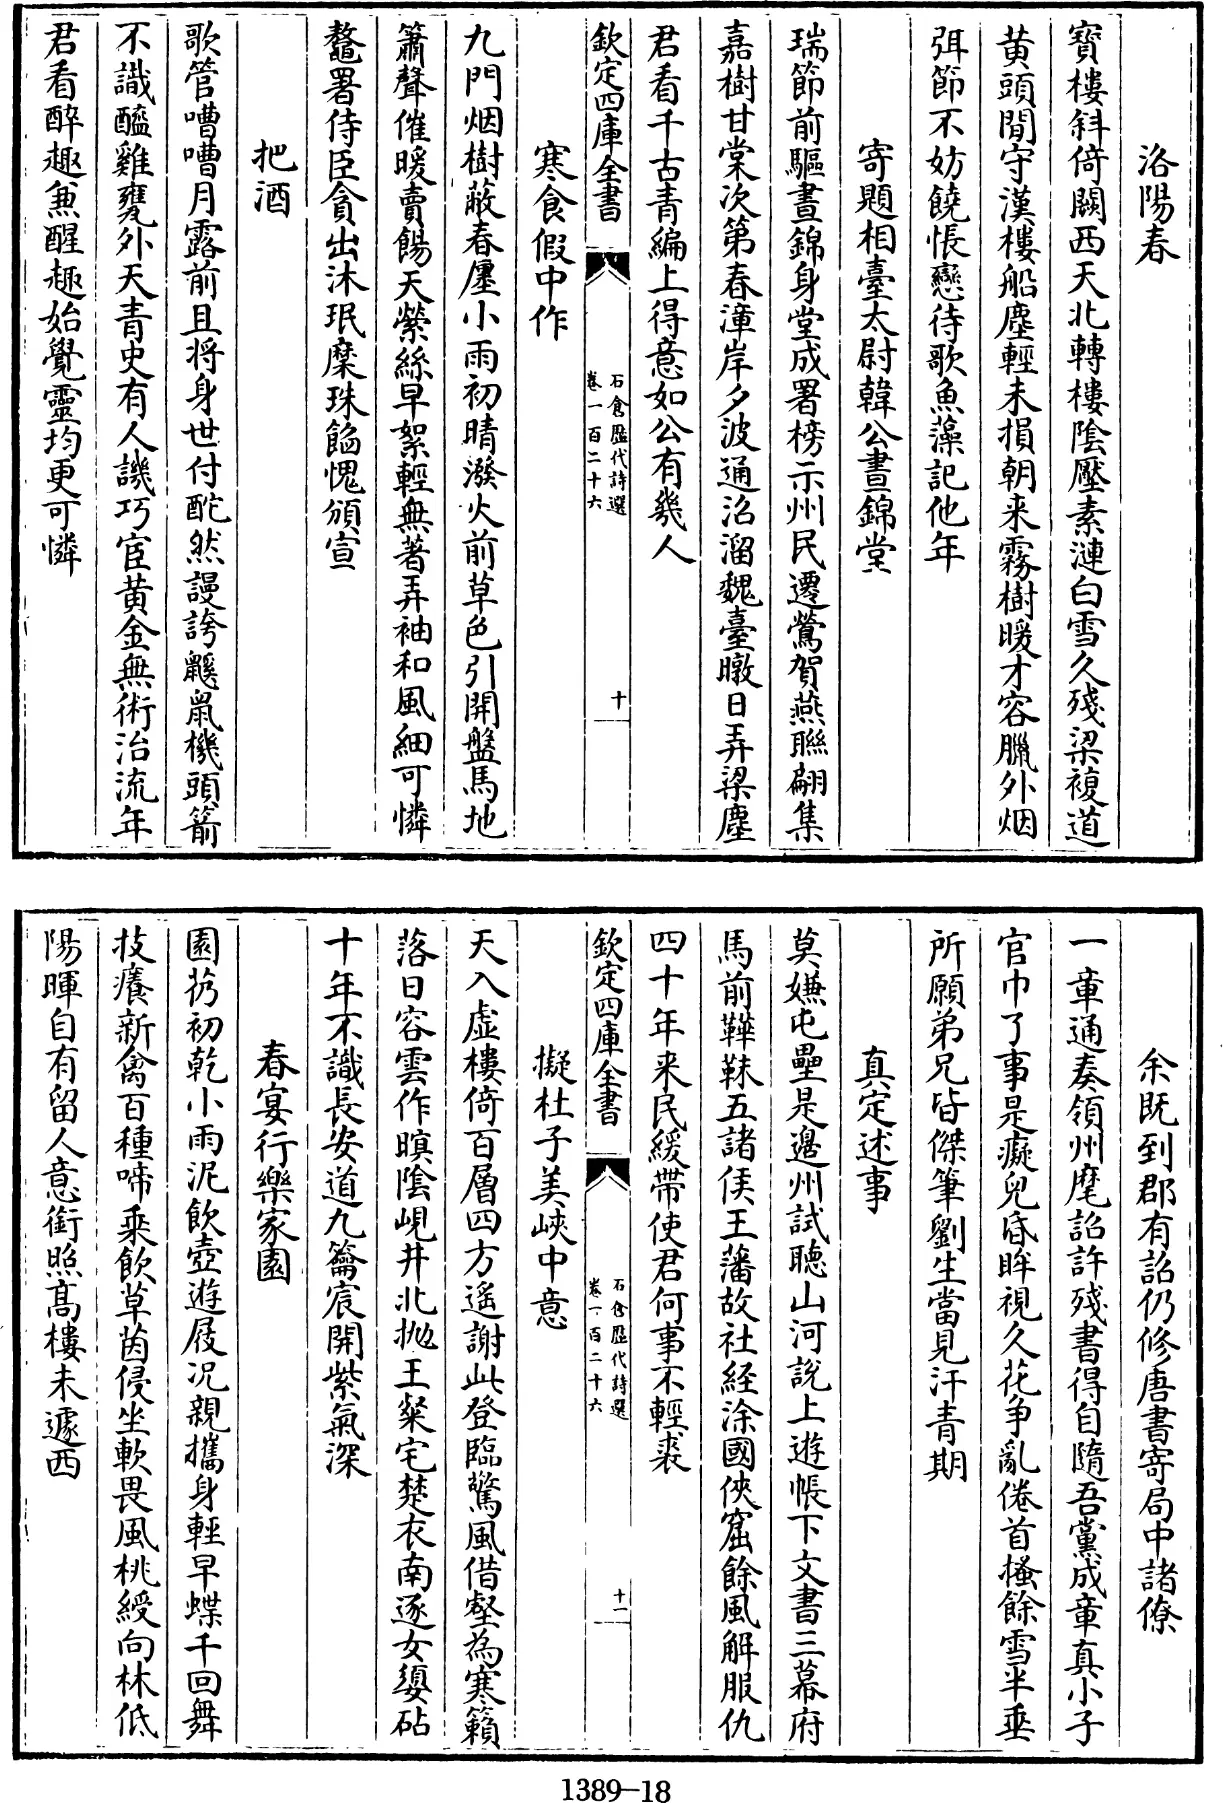 洛陽春
寶樓斜倚闕西天北轉樓陰壓素漣白雪久殘梁複道
黄頭間守漢樓船塵輕未損朝来霧樹暖才容臘外烟
弭節不妨饒悵戀待歌魚藻記他年
寄題相臺太尉韓公晝錦堂
瑞節前驅晝錦身堂成署榜示州民遷鶯賀燕聯翩集
嘉樹甘棠次第春漳岸夕波通沼溜魏臺暾日弄梁塵
君看千古青編上得意如公有幾人
欽定四庫全書
石倉歷代詩選
卷一百二十六
十
寒食假中作
九門烟樹蔽春廛小雨初晴潑火前草色引開盤馬地
簫聲催暖賣餳天縈絲早絮輕無著弄袖和風細可憐
鼇署侍臣貪出沐珉糜珠餡愧頒宣
把酒
歌管嘈嘈月露前且将身世付酡然謾誇鼷鼠機頭箭
不識醯雞甕外天青史有人譏巧宦黄金無術治流年
君看醉趣兼醒趣始覺靈均更可憐
余既到郡有詔仍修唐書寄局中諸僚
一章通奏領州麾詔許殘書得自隨吾黨成章真小子
官巾了事是癡兒昏眸視久花争亂倦首搔餘雪半垂
所願弟兄皆傑筆劉生當見汗青期
真定述事
莫嫌屯壘是邊州試聽山河說上遊帳下文書三幕府
馬前鞾韎五諸侯王藩故社経涂國俠窟餘風解服仇
四十年来民緩帶使君何事不輕裘
欽定四庫全書
石倉歷代詩選
卷一百二十六
十一
擬杜子美峽中意
天入虛樓倚百層四方遙謝此登臨驚風借壑為寒籟
落日容雲作暝陰峴井北抛王粲宅楚衣南逐女嬃砧
十年不識長安道九籥宸開紫氣深
春宴行樂家園
園芿初乾小雨泥飲壺遊屐况親攜身輕早蝶千回舞
技癢新禽百種啼乘飲草茵侵坐軟畏風桃綬向林低
陽暉自有留人意銜照髙樓未遽西
1389-18